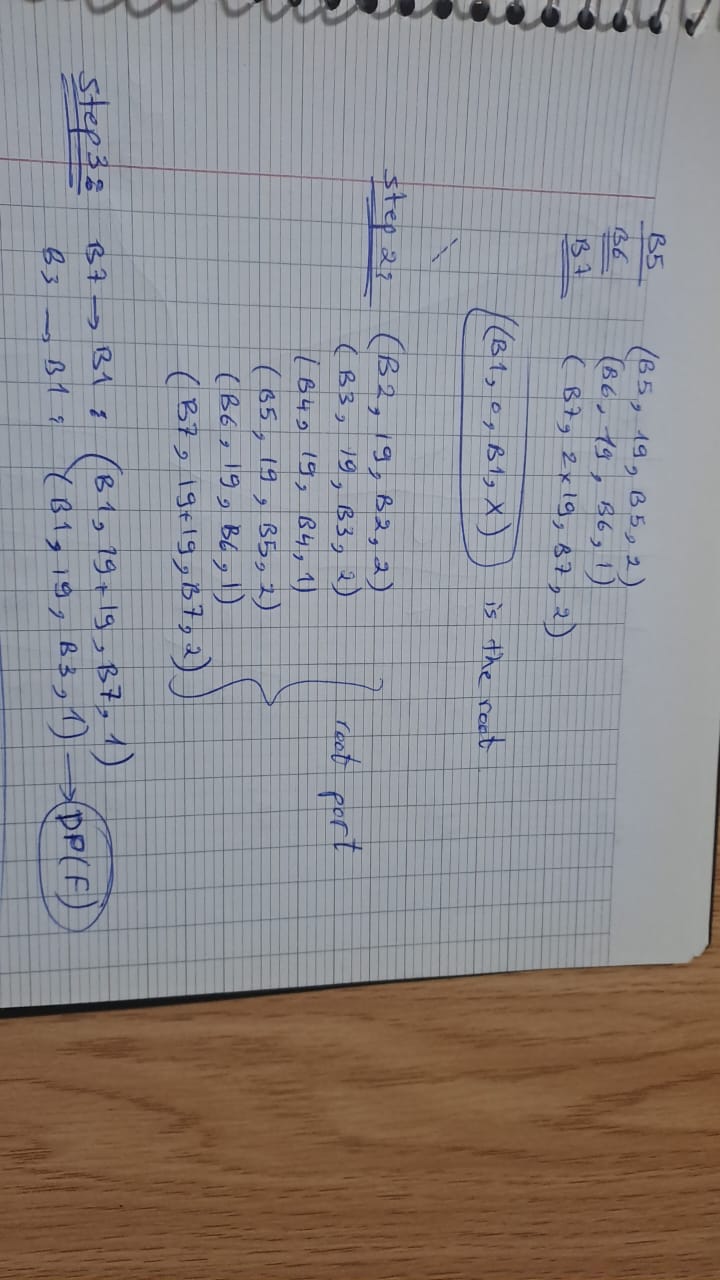 B5 (B5, 19, B5, 2)
B6 (B6, 19, B6, 1)
B7 (B7, 2x19, B7, 2)
(B1, 0, B1, X) is the root
step 2: (B2, 19, B2, 2)
(B3, 19, B3, 2)
(B4, 19, B4, 1)
(B5, 19, B5, 2)
(B6, 19, B6, 1)
(B7, 19+19, B7, 2)
root port
step 3: B7 → B1 : (B1, 19+19, B7, 1)
B3 → B1 : (B1, 19, B3, 1) → DP(F)